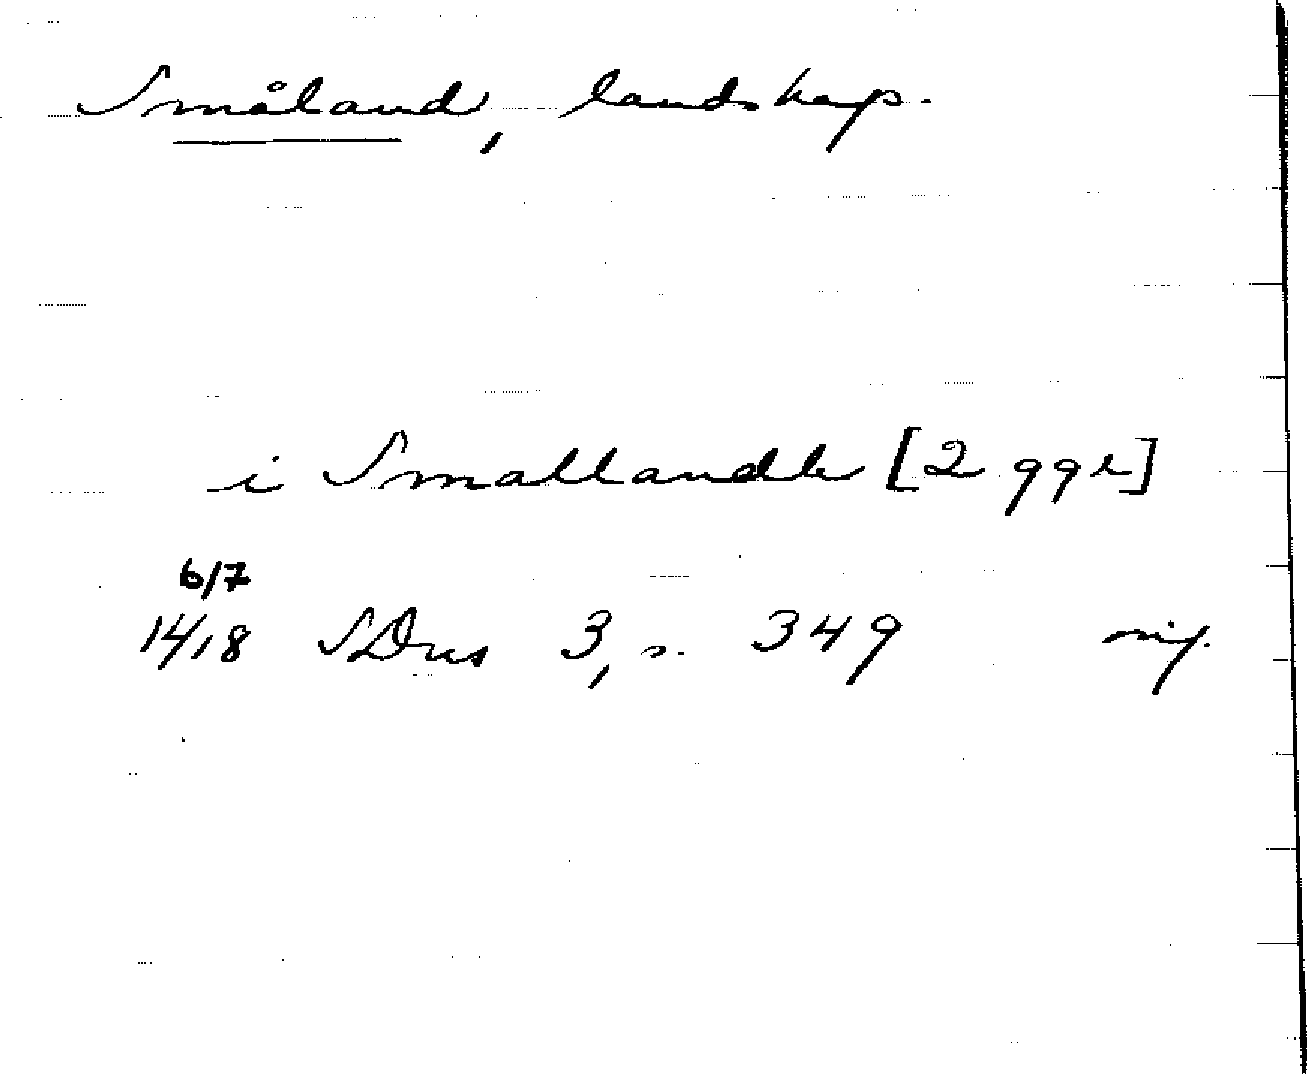 Småland, landskap.
i Smallandh [2 ggr]
6/7
14/18 SDns 3, s. 349 nif.